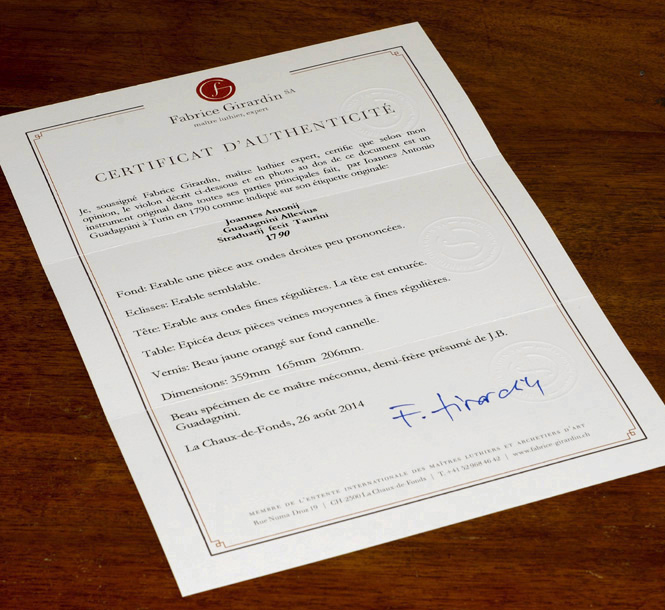 Fabrice Girardin SA
maître luthier, expert
CERTIFICAT D'AUTHENTICITÉ
Je, soussigné Fabrice Girardin, maître luthier expert, certifie que selon mon
opinion, le violon décrit ci-dessous et en photo au dos de ce document est un
instrument original dans toutes ses parties principales fait, par Ioannes Antonio
Guadagnini à Turin en 1790 comme indiqué sur son étiquette originale:
Joannes Antonij
Guadagnini Allevius
Straduarij fecit Taurini
1790
Fond: Erable une pièce aux ondes droites peu prononcées.
Eclisses: Erable semblable.
Tête: Erable aux ondes fines régulières. La tête est enturée.
Table: Epicéa deux pièces veines moyennes à fines régulières.
Vernis: Beau jaune orangé sur fond cannelle.
Dimensions: 359mm 165mm 206mm.
Beau spécimen de ce maître méconnu, demi-frère présumé de J.B.
Guadagnini.
La Chaux-de-Fonds, 26 août 2014
F. Girardin
MEMBRE DE L'ENTENTE INTERNATIONALE DES MAÎTRES LUTHIERS ET ARCHETIERS D'ART
Rue Numa-Droz 19 | CH-2300 La Chaux-de-Fonds | T. +41 32 968 46 42 | www.fabrice-girardin.ch